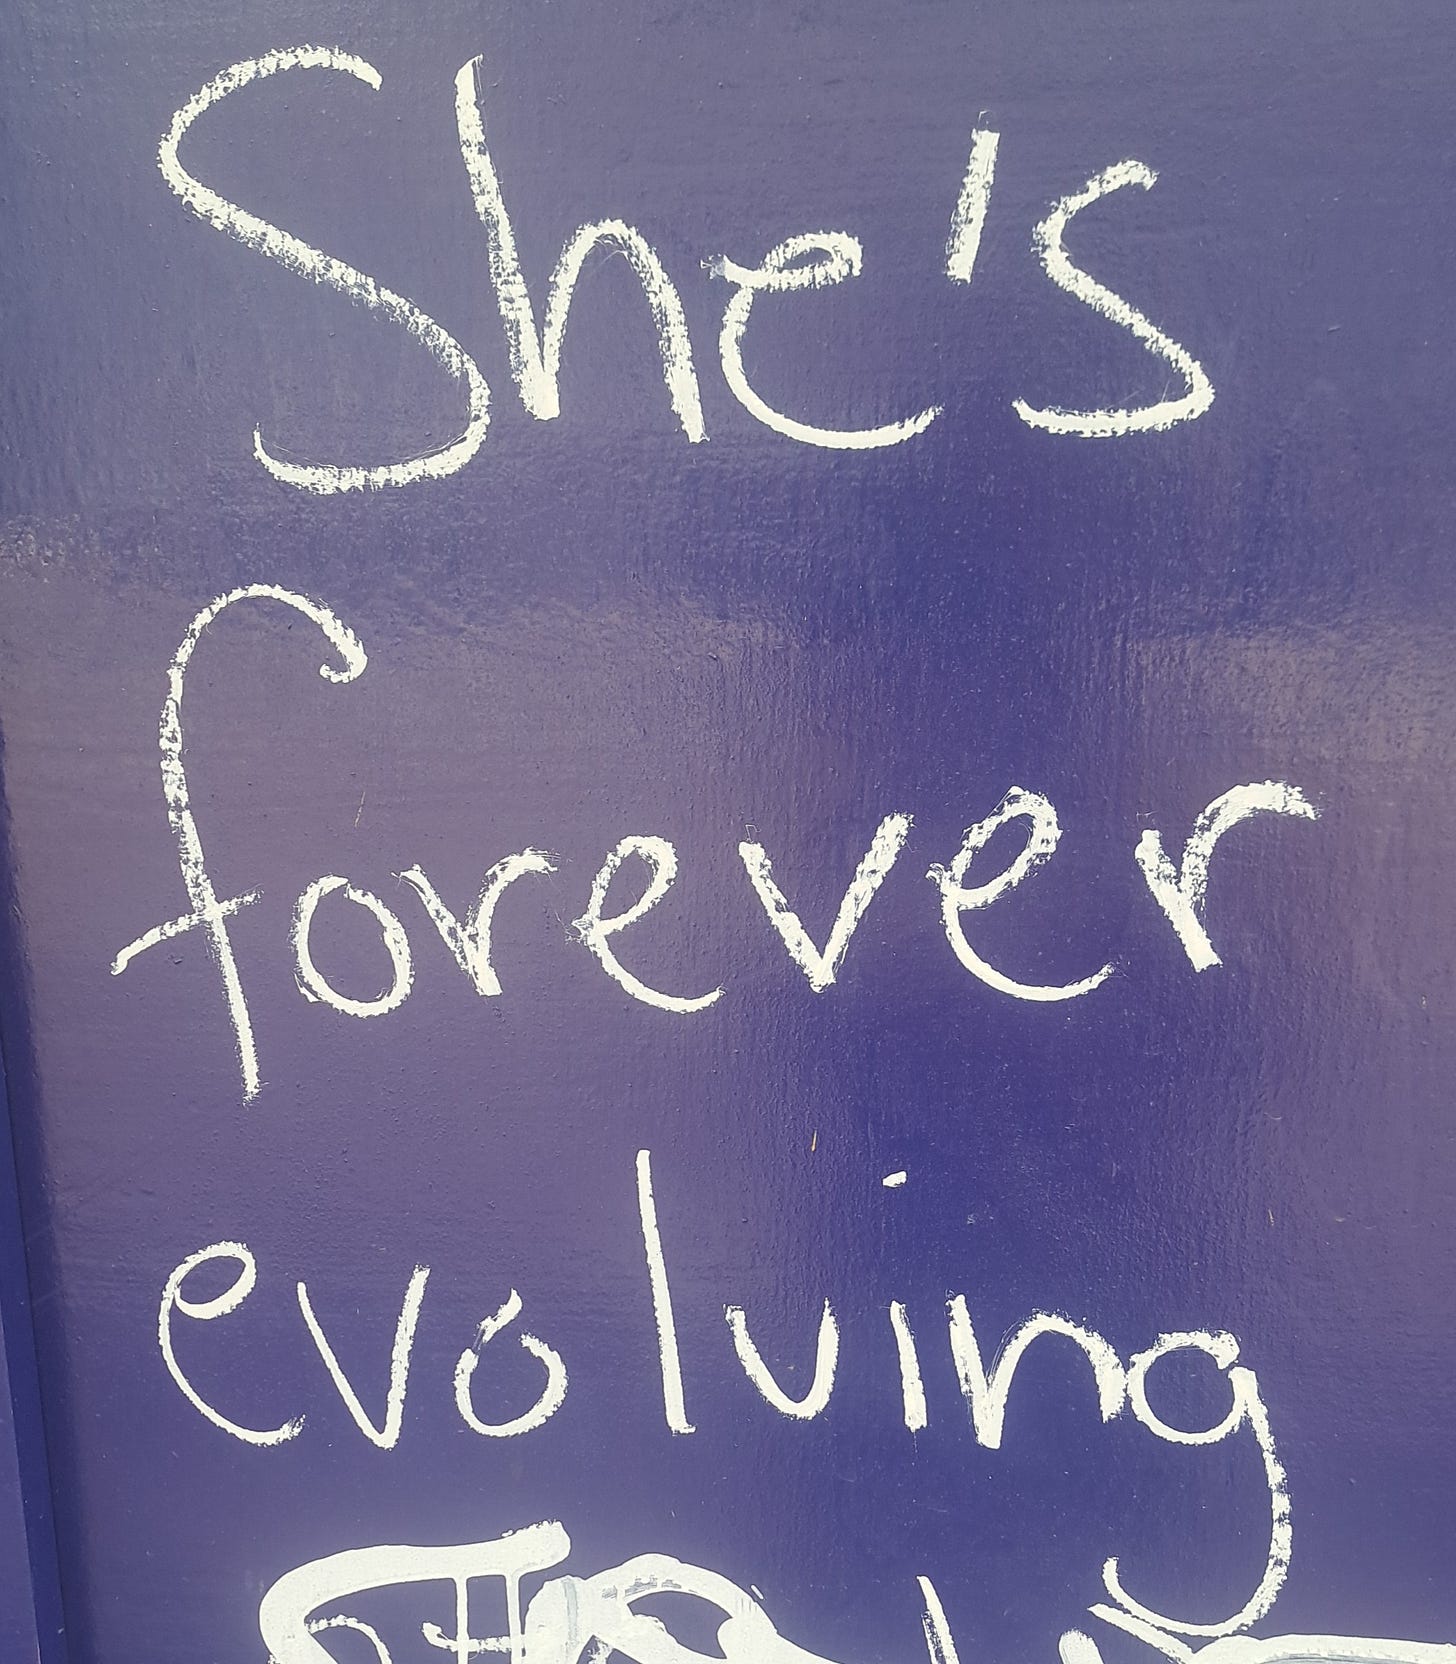 She's
forever
evolving